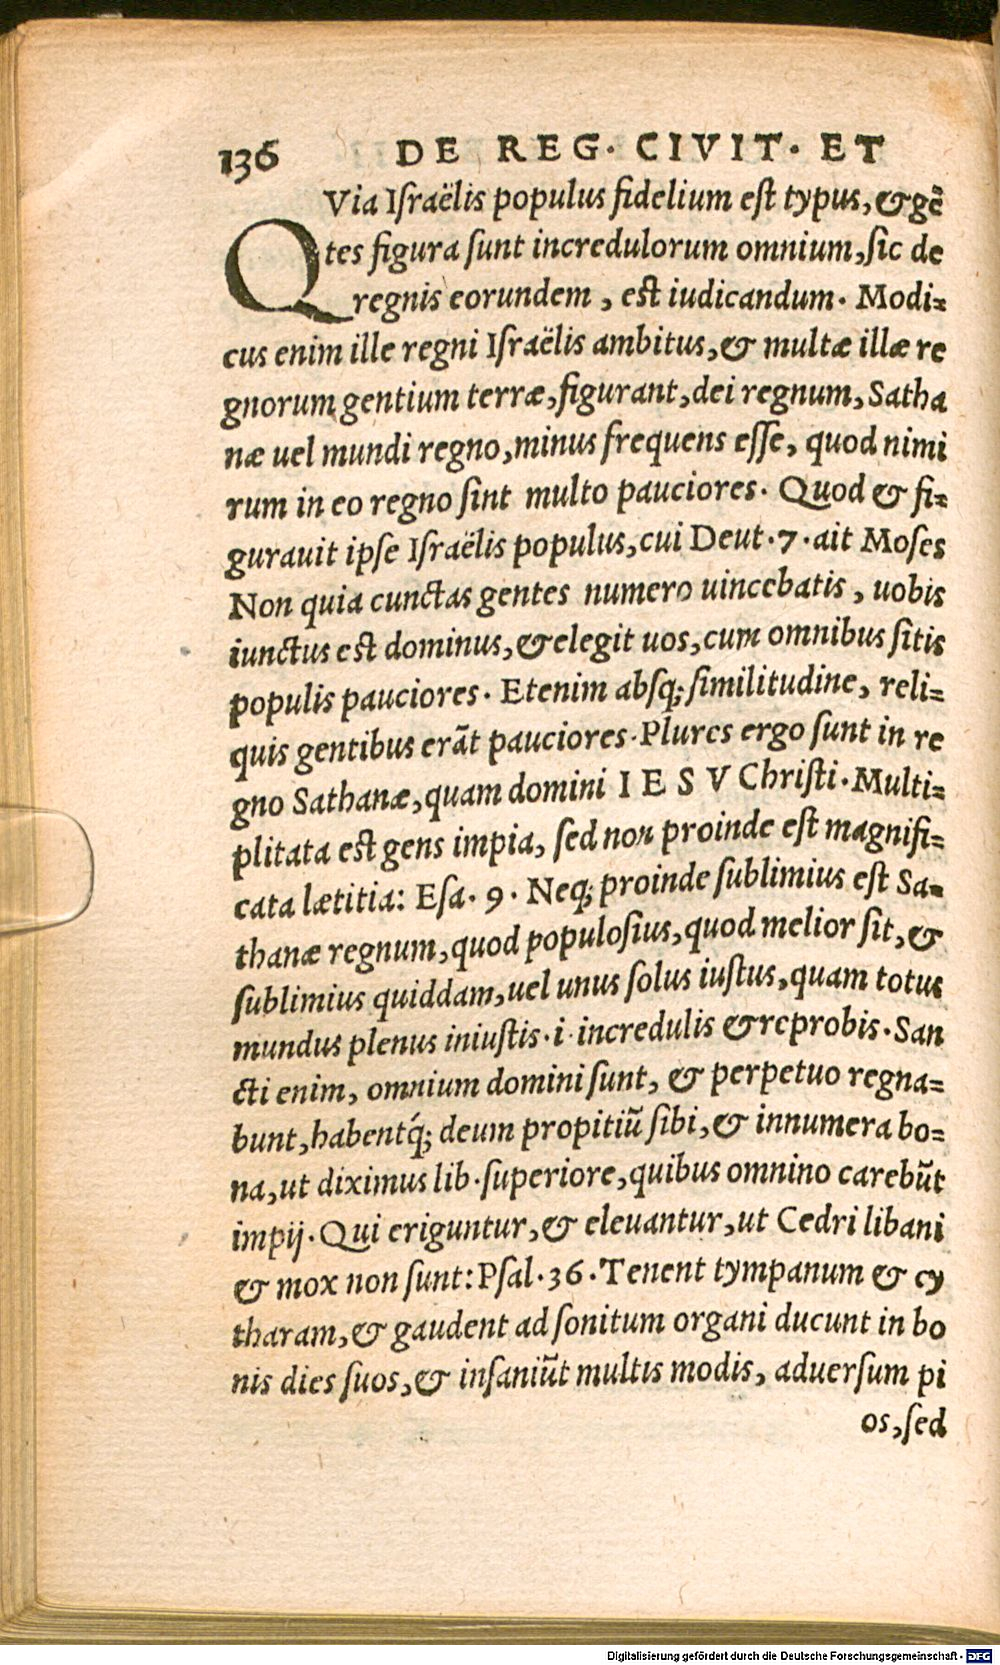 136 DE REG. CIVIT. ET
QVia Iſraëlis populus fidelium eſt typus, & gẽ
tes figura ſunt incredulorum omnium, ſic de
regnis eorundem, eſt iudicandum. Modi⸗
cus enim ille regni Iſraëlis ambitus, & multæ illæ re
gnorum gentium terræ, figurant, dei regnum, Satha
næ uel mundi regno, minus frequens eſſe, quod nimi
rum in eo regno ſint multo pauciores. Quod & fi⸗
gurauit ipſe Iſraëlis populus, cui Deut. 7. ait Moſes
Non quia cunctas gentes numero uincebatis, uobis
iunctus eſt dominus, & elegit uos, cum omnibus ſitis
populis pauciores. Etenim abſq; ſimilitudine, reli⸗
quis gentibus erãt pauciores. Plures ergo ſunt in re
gno Sathanæ, quam domini I E S V Chriſti. Multi⸗
plitata eſt gens impia, ſed non proinde eſt magnifi⸗
cata lætitia: Eſa. 9. Neq; proinde ſublimius eſt Sa⸗
thanæ regnum, quod populoſius, quod melior ſit, &
ſublimius quiddam, uel unus ſolus iuſtus, quam totus
mundus plenus iniuſtis. i. incredulis & reprobis. San
cti enim, omnium domini ſunt, & perpetuo regna⸗
bunt, habentq́; deum propitiũ ſibi, & innumera bo⸗
na, ut diximus lib. ſuperiore, quibus omnino carebũt
impij. Qui eriguntur, & eleuantur, ut Cedri libani
& mox non ſunt: Pſal. 36. Tenent tympanum & cy
tharam, & gaudent ad ſonitum organi ducunt in bo
nis dies ſuos, & inſaniũt multis modis, aduerſum pi
os, ſed
Digitalisierung gefördert durch die Deutsche Forschungsgemeinschaft - DFG